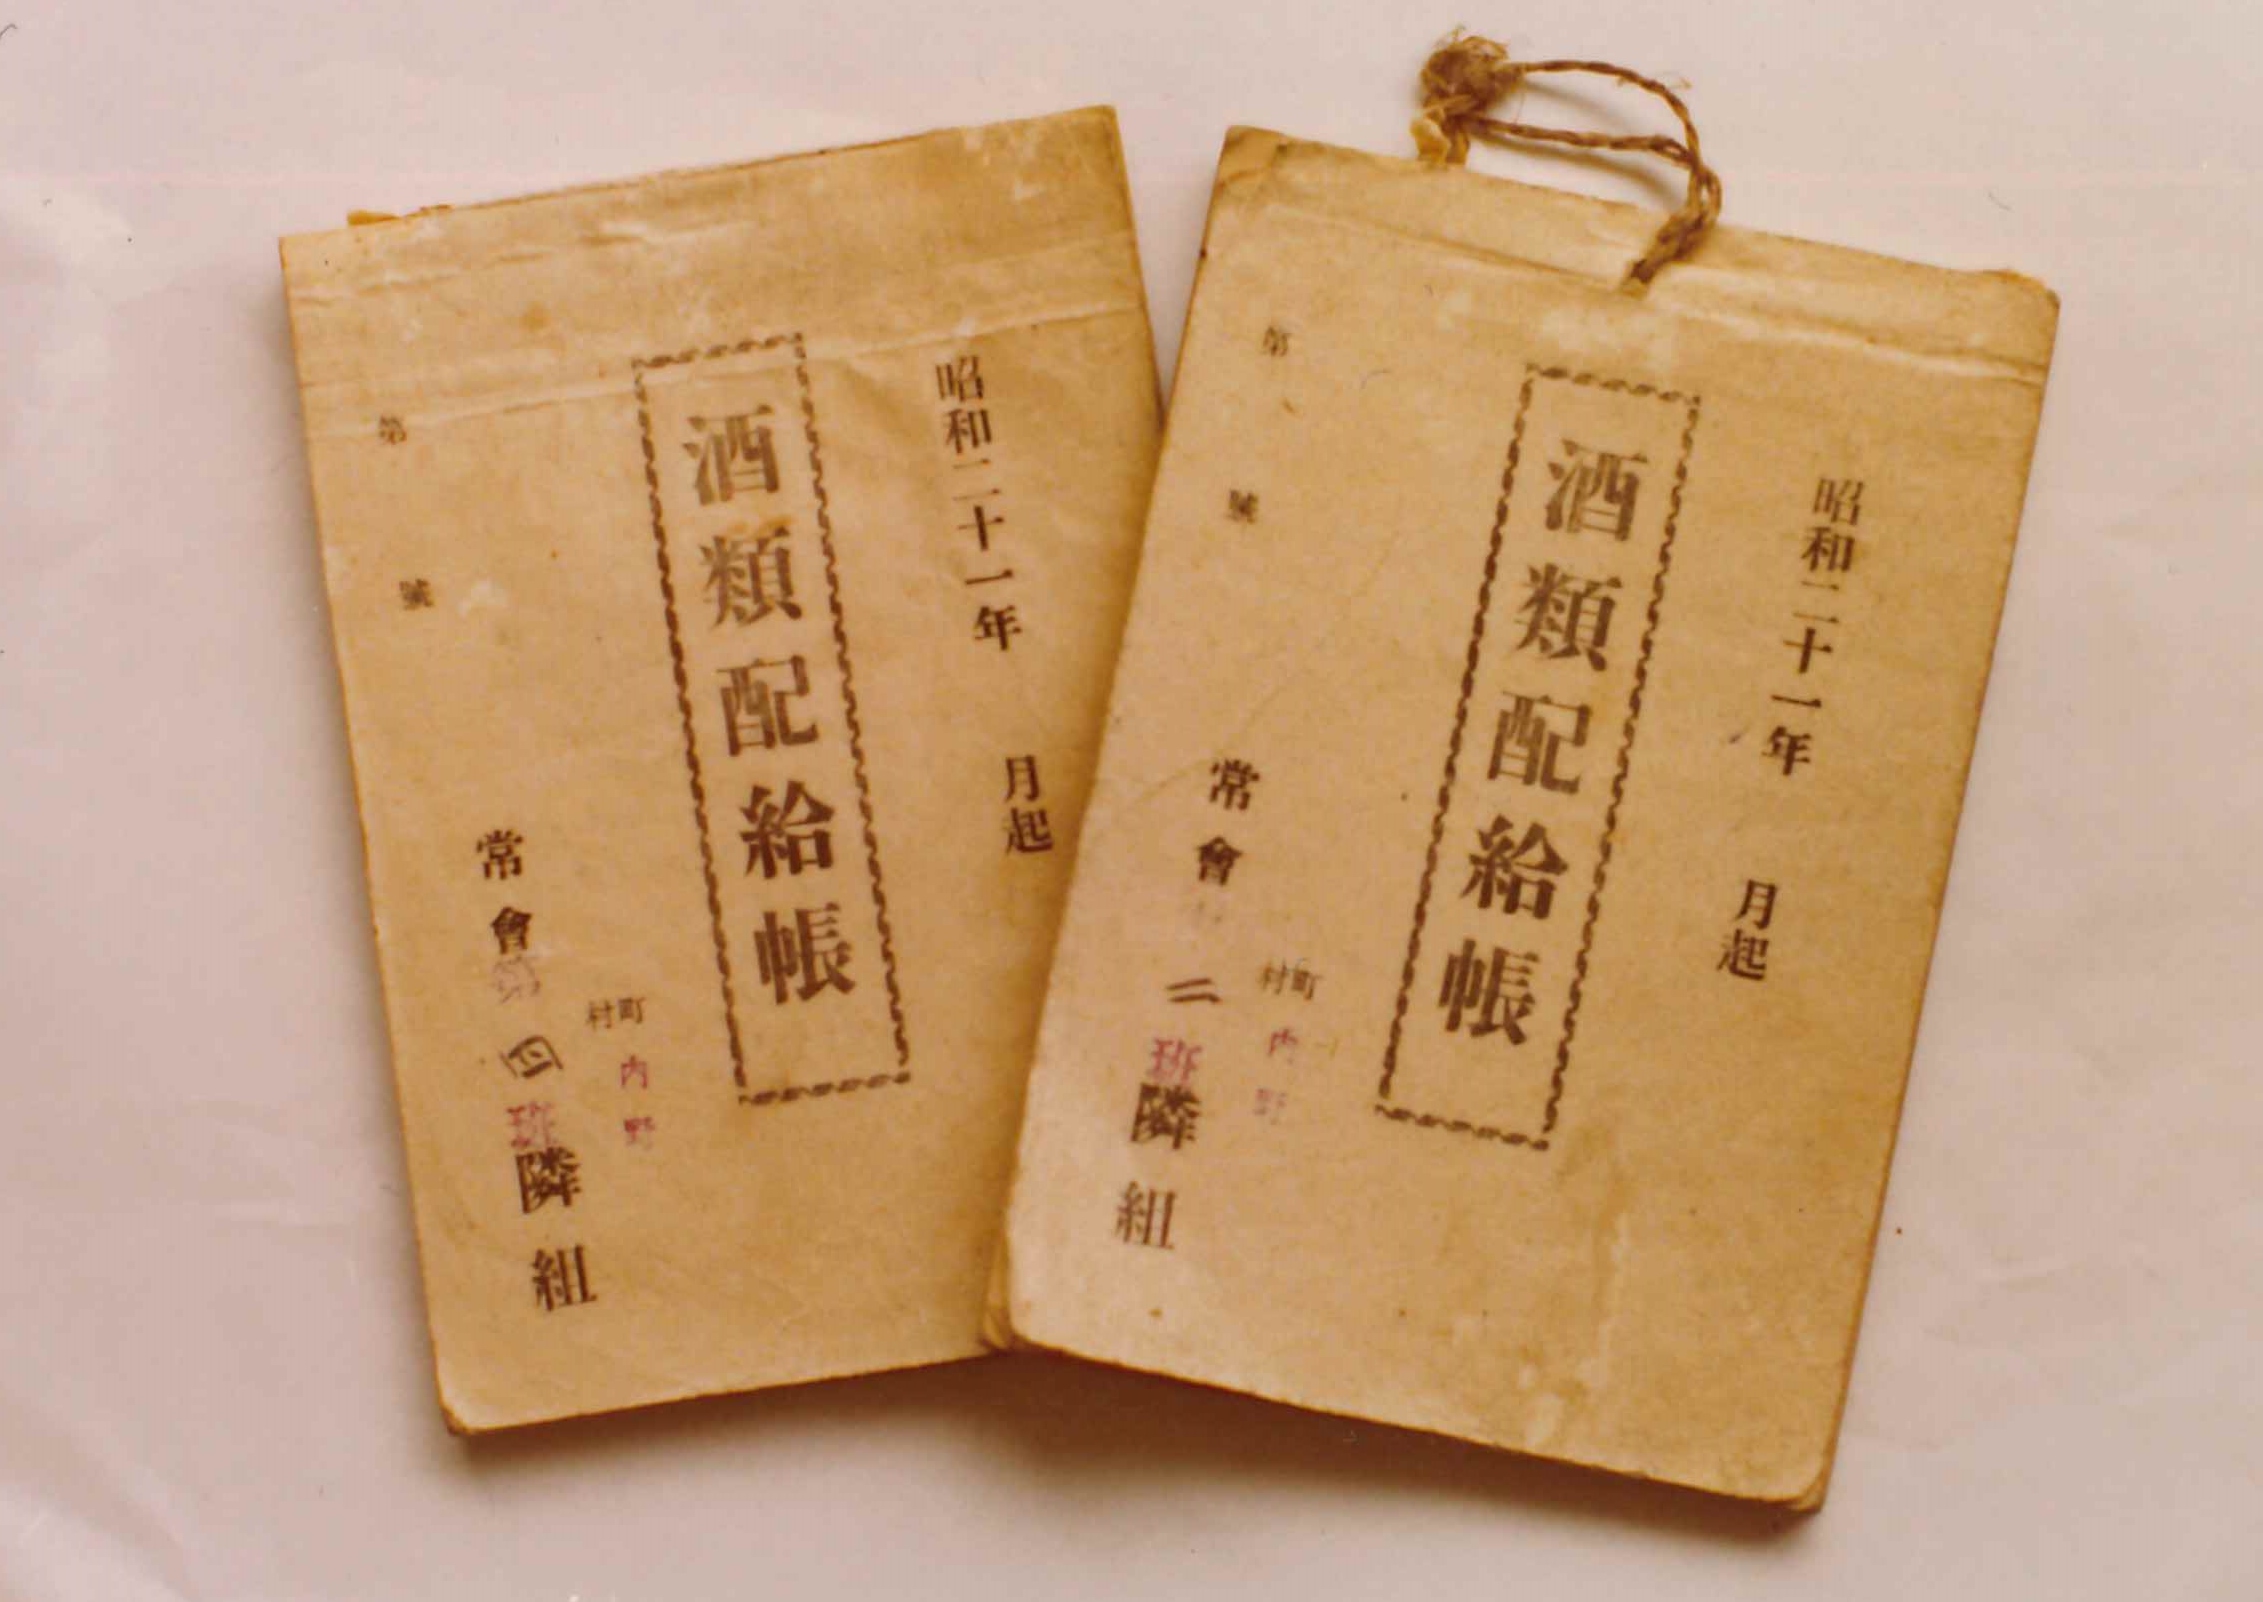 昭和二十一年　月起
酒類配給帳
町村 内野
常會第四班隣組
第　號
昭和二十一年　月起
酒類配給帳
町村 内野
常會 二班隣組
第　號